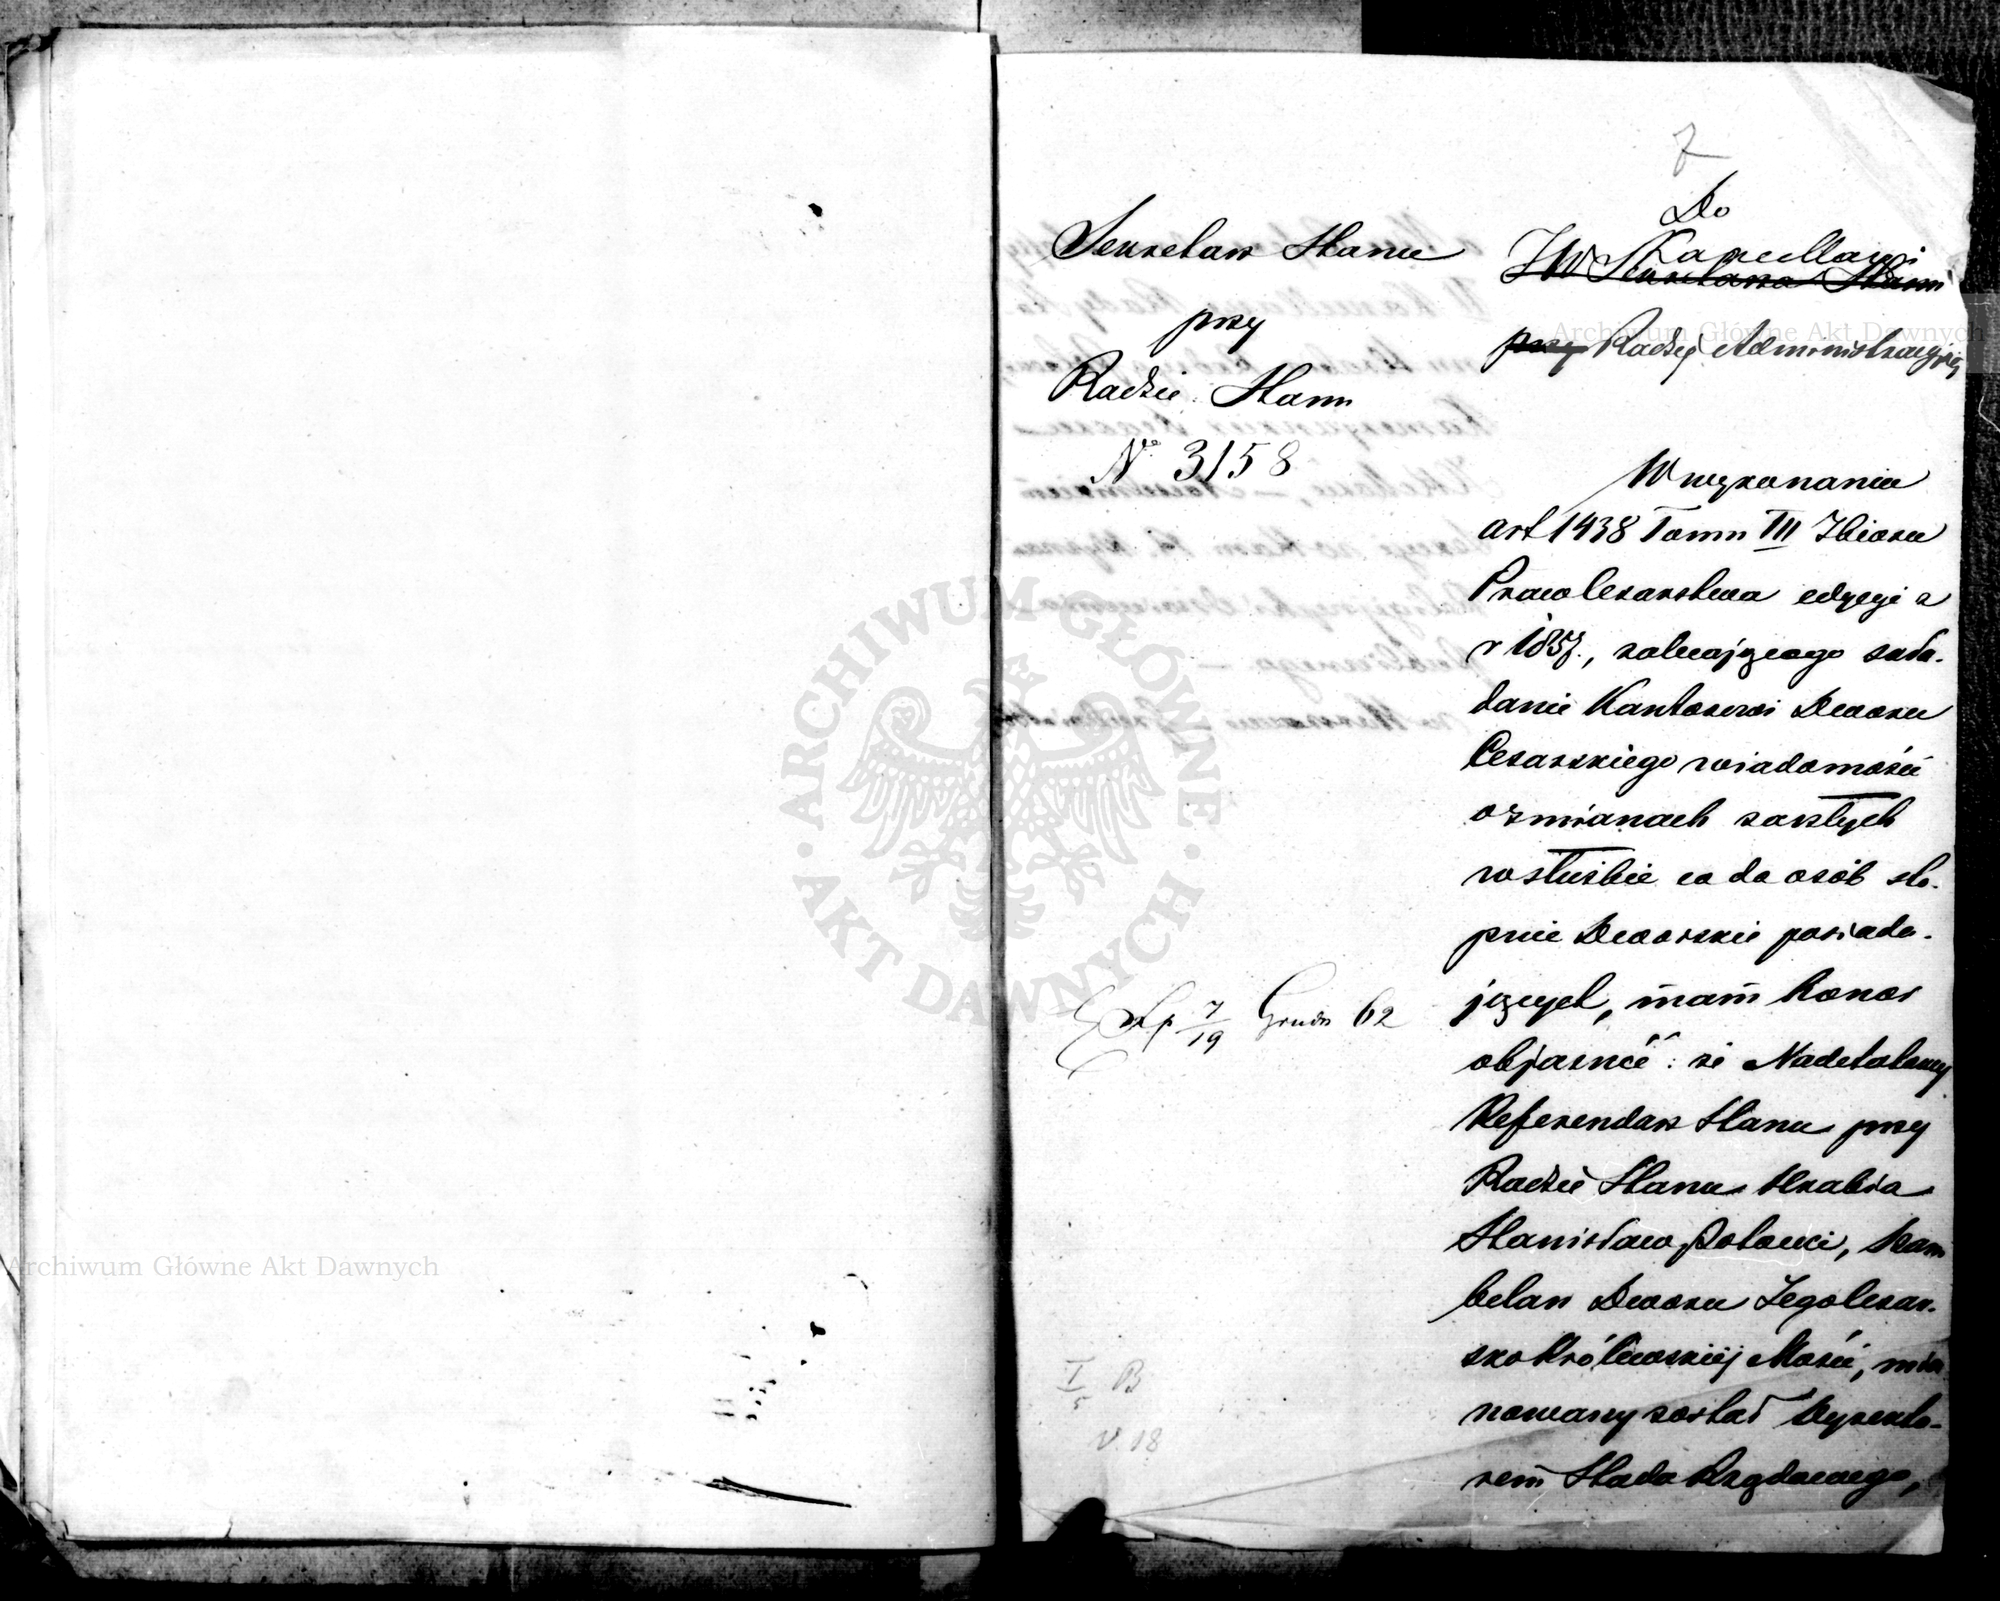 7
Sekretarz Stanu
przy
Radzie Stanu
N° 3158
Exp 7/19 Grud 62
I/5 B
v. 18
Do
Kancellaryi
JW Sekretarza Stanu
przy Radzie Administracyjnej
W wykonaniu
art 1438 Tomu III Zbioru
Praw Cesarstwa edycyi z
r 1857., zalecającego zada-
danie Kantorowi Dworu
Cesarskiego wiadomości
o zmianach zaszłych
w służbie co do osób sto-
pnie Dworskie posiada-
jących, mam honor
objaśnić: że Nadetatowy
Referendarz Stanu przy
Radzie Stanu Hrabia
Stanisław Potocki, Kam
belan Dworu Jego Cesar-
sko Królewskiej Mości, mia
nowany został Dyrekto-
rem Stada Rządowego,
ARCHIWUM GŁÓWNE
AKT DAWNYCH
Archiwum Główne Akt Dawnych
Archiwum Główne Akt Dawnych